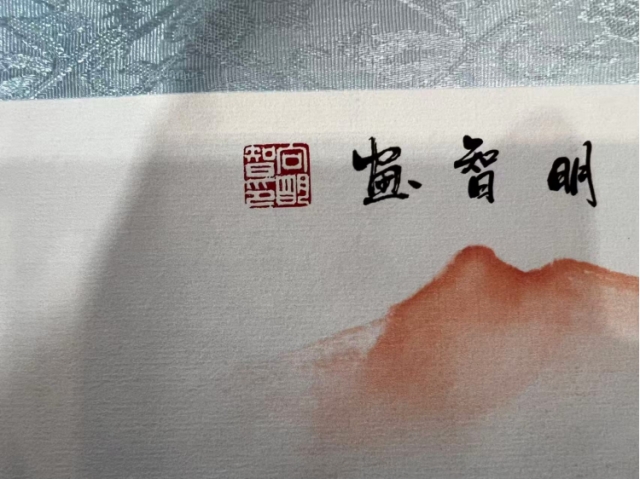 明智畫
向明智印